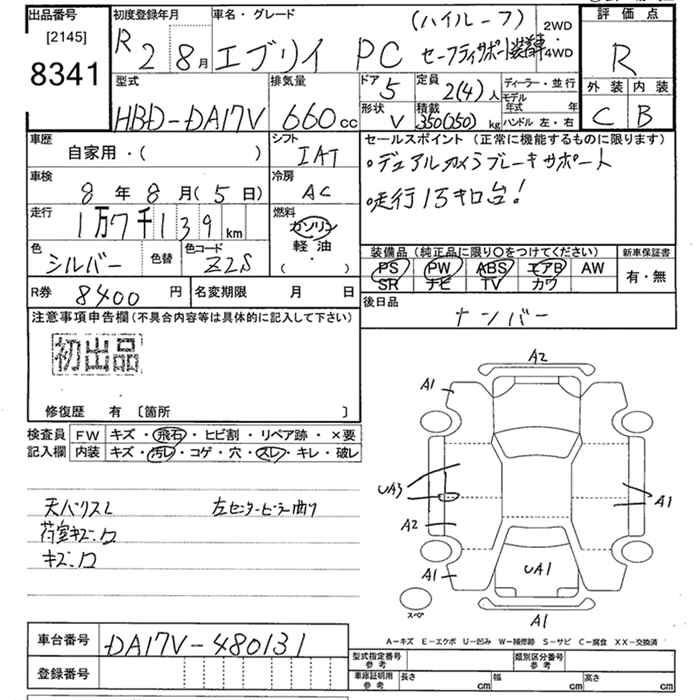 出品番号
[2145]
8341
初度登録年月
R 2 8月
車名・グレード
エブリイ PC (ハイルーフ)
セーフティサポート装着車
2WD
4WD
評価点
R
外装 内装
C B
型式
HBD-DA17V
排気量
660cc
ドア 5
形状 V
定員 2(4)人
積載 350(250)kg
ディーラー・並行
モデル年式 年
ハンドル 左・右
車歴
自家用・( )
シフト
IAT
セールスポイント (正常に機能するものに限ります)
・デュアルカメラブレーキサポート
・走行1万キロ台!
車検
8年8月(5日)
冷房
AC
走行
1万7千139km
燃料
ガソリン
軽油
( ・ )
色
シルバー
色替
色コード
Z2S
装備品 (純正品に限り〇をつけてください)
PS PW ABS エアB AW
SR ナビ TV カワ
新車保証書
有・無
R券 8400円
名変期限 月 日
後日品
ナンバー
注意事項申告欄(不具合内容等は具体的に記入して下さい)
初出品
修復歴 有 [箇所 ]
検査員記入欄
FW キズ・飛石・ヒビ割・リペア跡・×要
内装 キズ・汚レ・コゲ・穴・スレ・キレ・破レ
天バリスレ
左センターピラー曲り
荷室キズ・凹
キズ・凹
A2
A1
UA3
A2
A1
A1
UA1
A1
スペア
A-キズ E-エクボ U-凹み W-補修跡 S-サビ C-腐食 XX-交換済
車台番号
DA17V-480131
登録番号
型式指定番号
参考
類別区分番号
参考
車庫証明用
参考
長さ cm
幅 cm
高さ cm